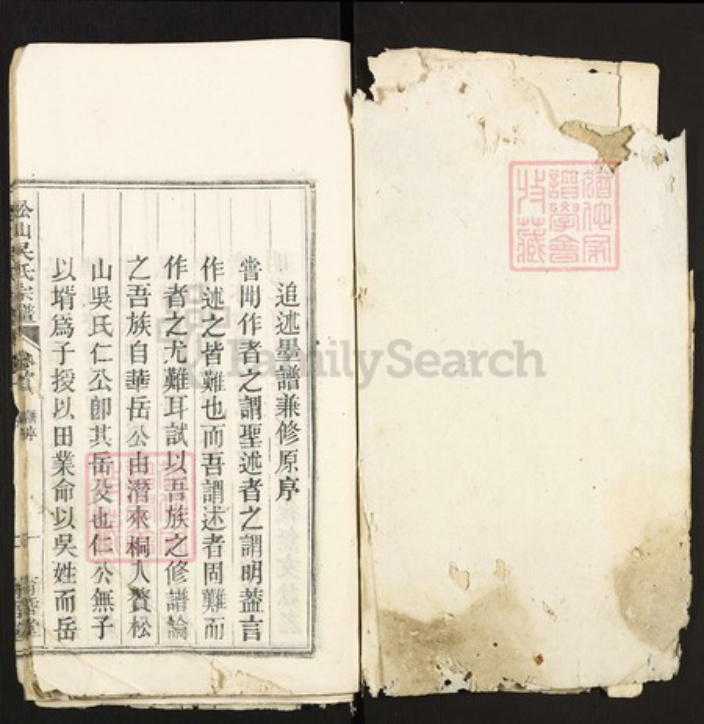 追述墨譜兼修原序
嘗聞作者之謂聖述者之謂明葢言
作述之皆難也而吾謂述者固難而
作者之尤難耳試以吾族之修譜論
之吾族自華岳公由潛來桐入贅松
山吳氏仁公卽其岳父也仁公無子
以壻爲子授以田業命以吳姓而岳
松山吳氏宗譜
卷首
FamilySearch
譜學會